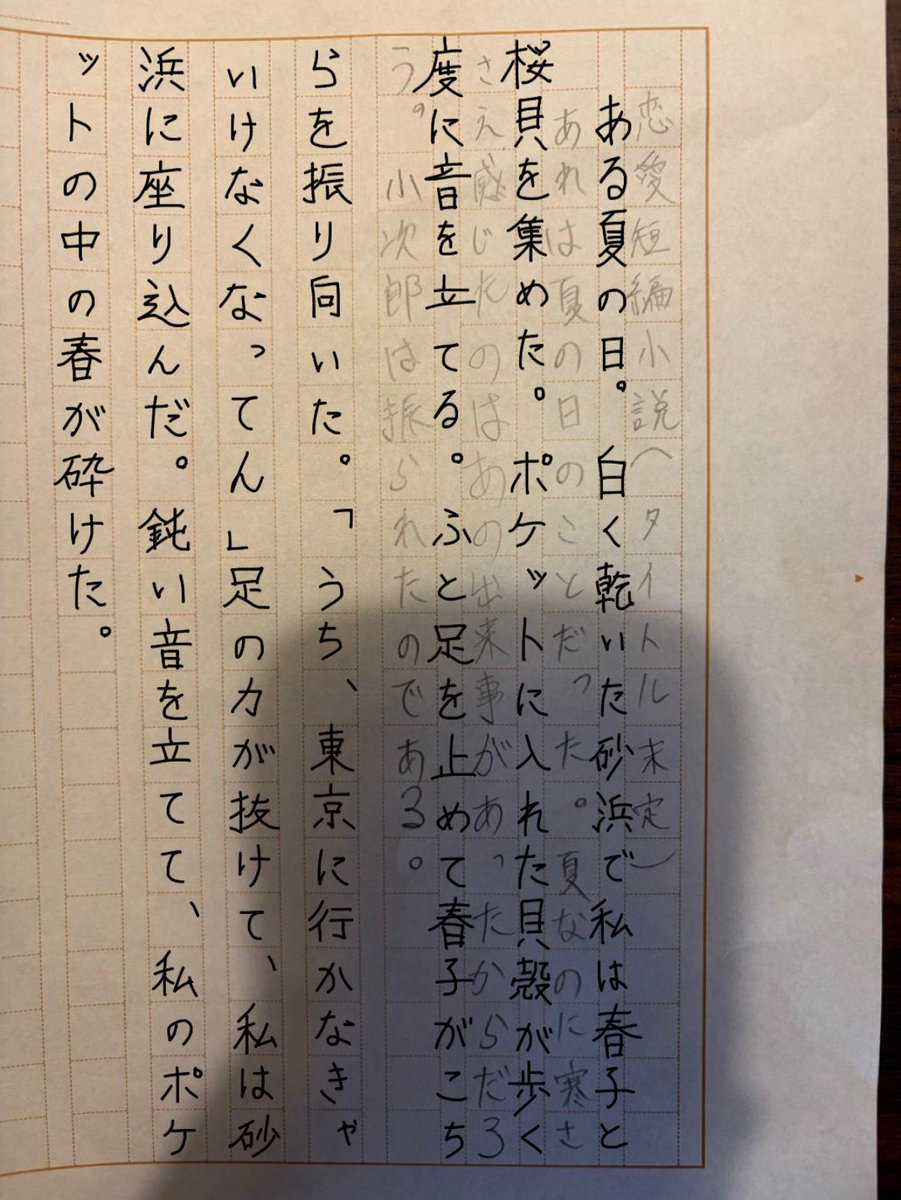 恋愛短編小説(タイトル未定)
ある夏の日。白く乾いた砂浜で私は春子と
あれは夏の日のことだった。夏なのに寒さ
桜貝を集めた。ポケットに入れた貝殻が歩く
さえ感じたのはあの出来事があったからだろ
度に音を立てる。ふと足を止めて春子がこち
う。小次郎は振られたのである。
らを振り向いた。「うち、東京に行かなきゃ
いけなくなってん」足の力が抜けて、私は砂
浜に座り込んだ。鈍い音を立てて、私のポケ
ットの中の春が砕けた。